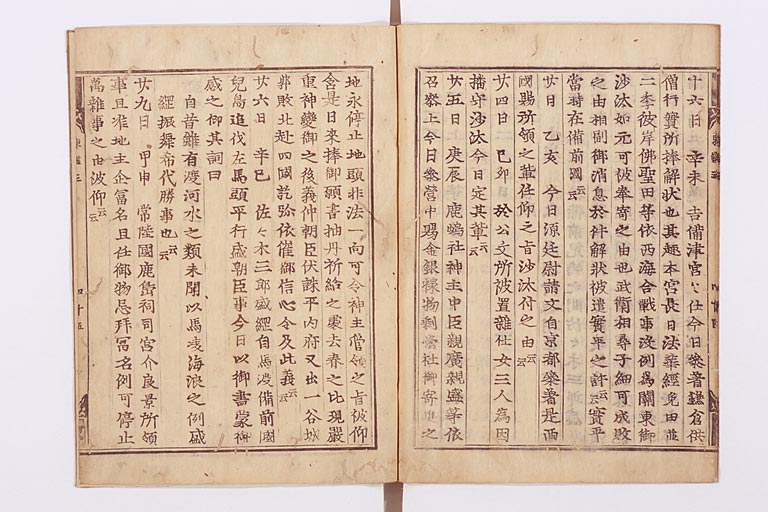 十六日 辛未 吉備津宮々仕今日參著鎌倉供
僧行實所捧解狀也其趣本宮長日法華經免田並
二季彼岸佛聖田等依西海合戰事沒例爲關東御
沙汰如元可被奉寄之由也武衛相尋子細可成敗
之由相副御消息於件解狀被遣實平之許云云實平
當時在備前國云云
廿日 乙亥 今日源廷尉請文自京都參著是西
國賜所領之輩仕仰之旨沙汰付之由云云
廿四日 己卯日 於公文所被置雜仕女三人爲因
播守沙汰今日定其輩云云
廿五日 庚辰 鹿嶋社神主中臣親廣親盛等依
召參上今日參營中賜金銀祿物剩當社御寄附之
地永停止地頭非法一向可令神主管領之旨被仰
含是日來捧御願書抽丹祈給之處去春之比現嚴
重神變御之後義仲朝臣伏誅平內府又出一谷城
郭敗北赴四國訖弥依催御信心令及此義云云
廿六日 辛巳 佐々木三郎盛經自馬渡備前國
兒嶋追伐左馬頭平行盛朝臣事今日以御書蒙御
感之仰其詞曰
自昔雖有渡河水之類未聞以馬凌海浪之例盛
經振舞希代勝事也云云
廿九日 甲申 常陸國鹿嶋祠司宮介良景所領
事且准地主企冨名且任御物忌拜冨名例可停止
萬雜事之由被仰云云
四十五